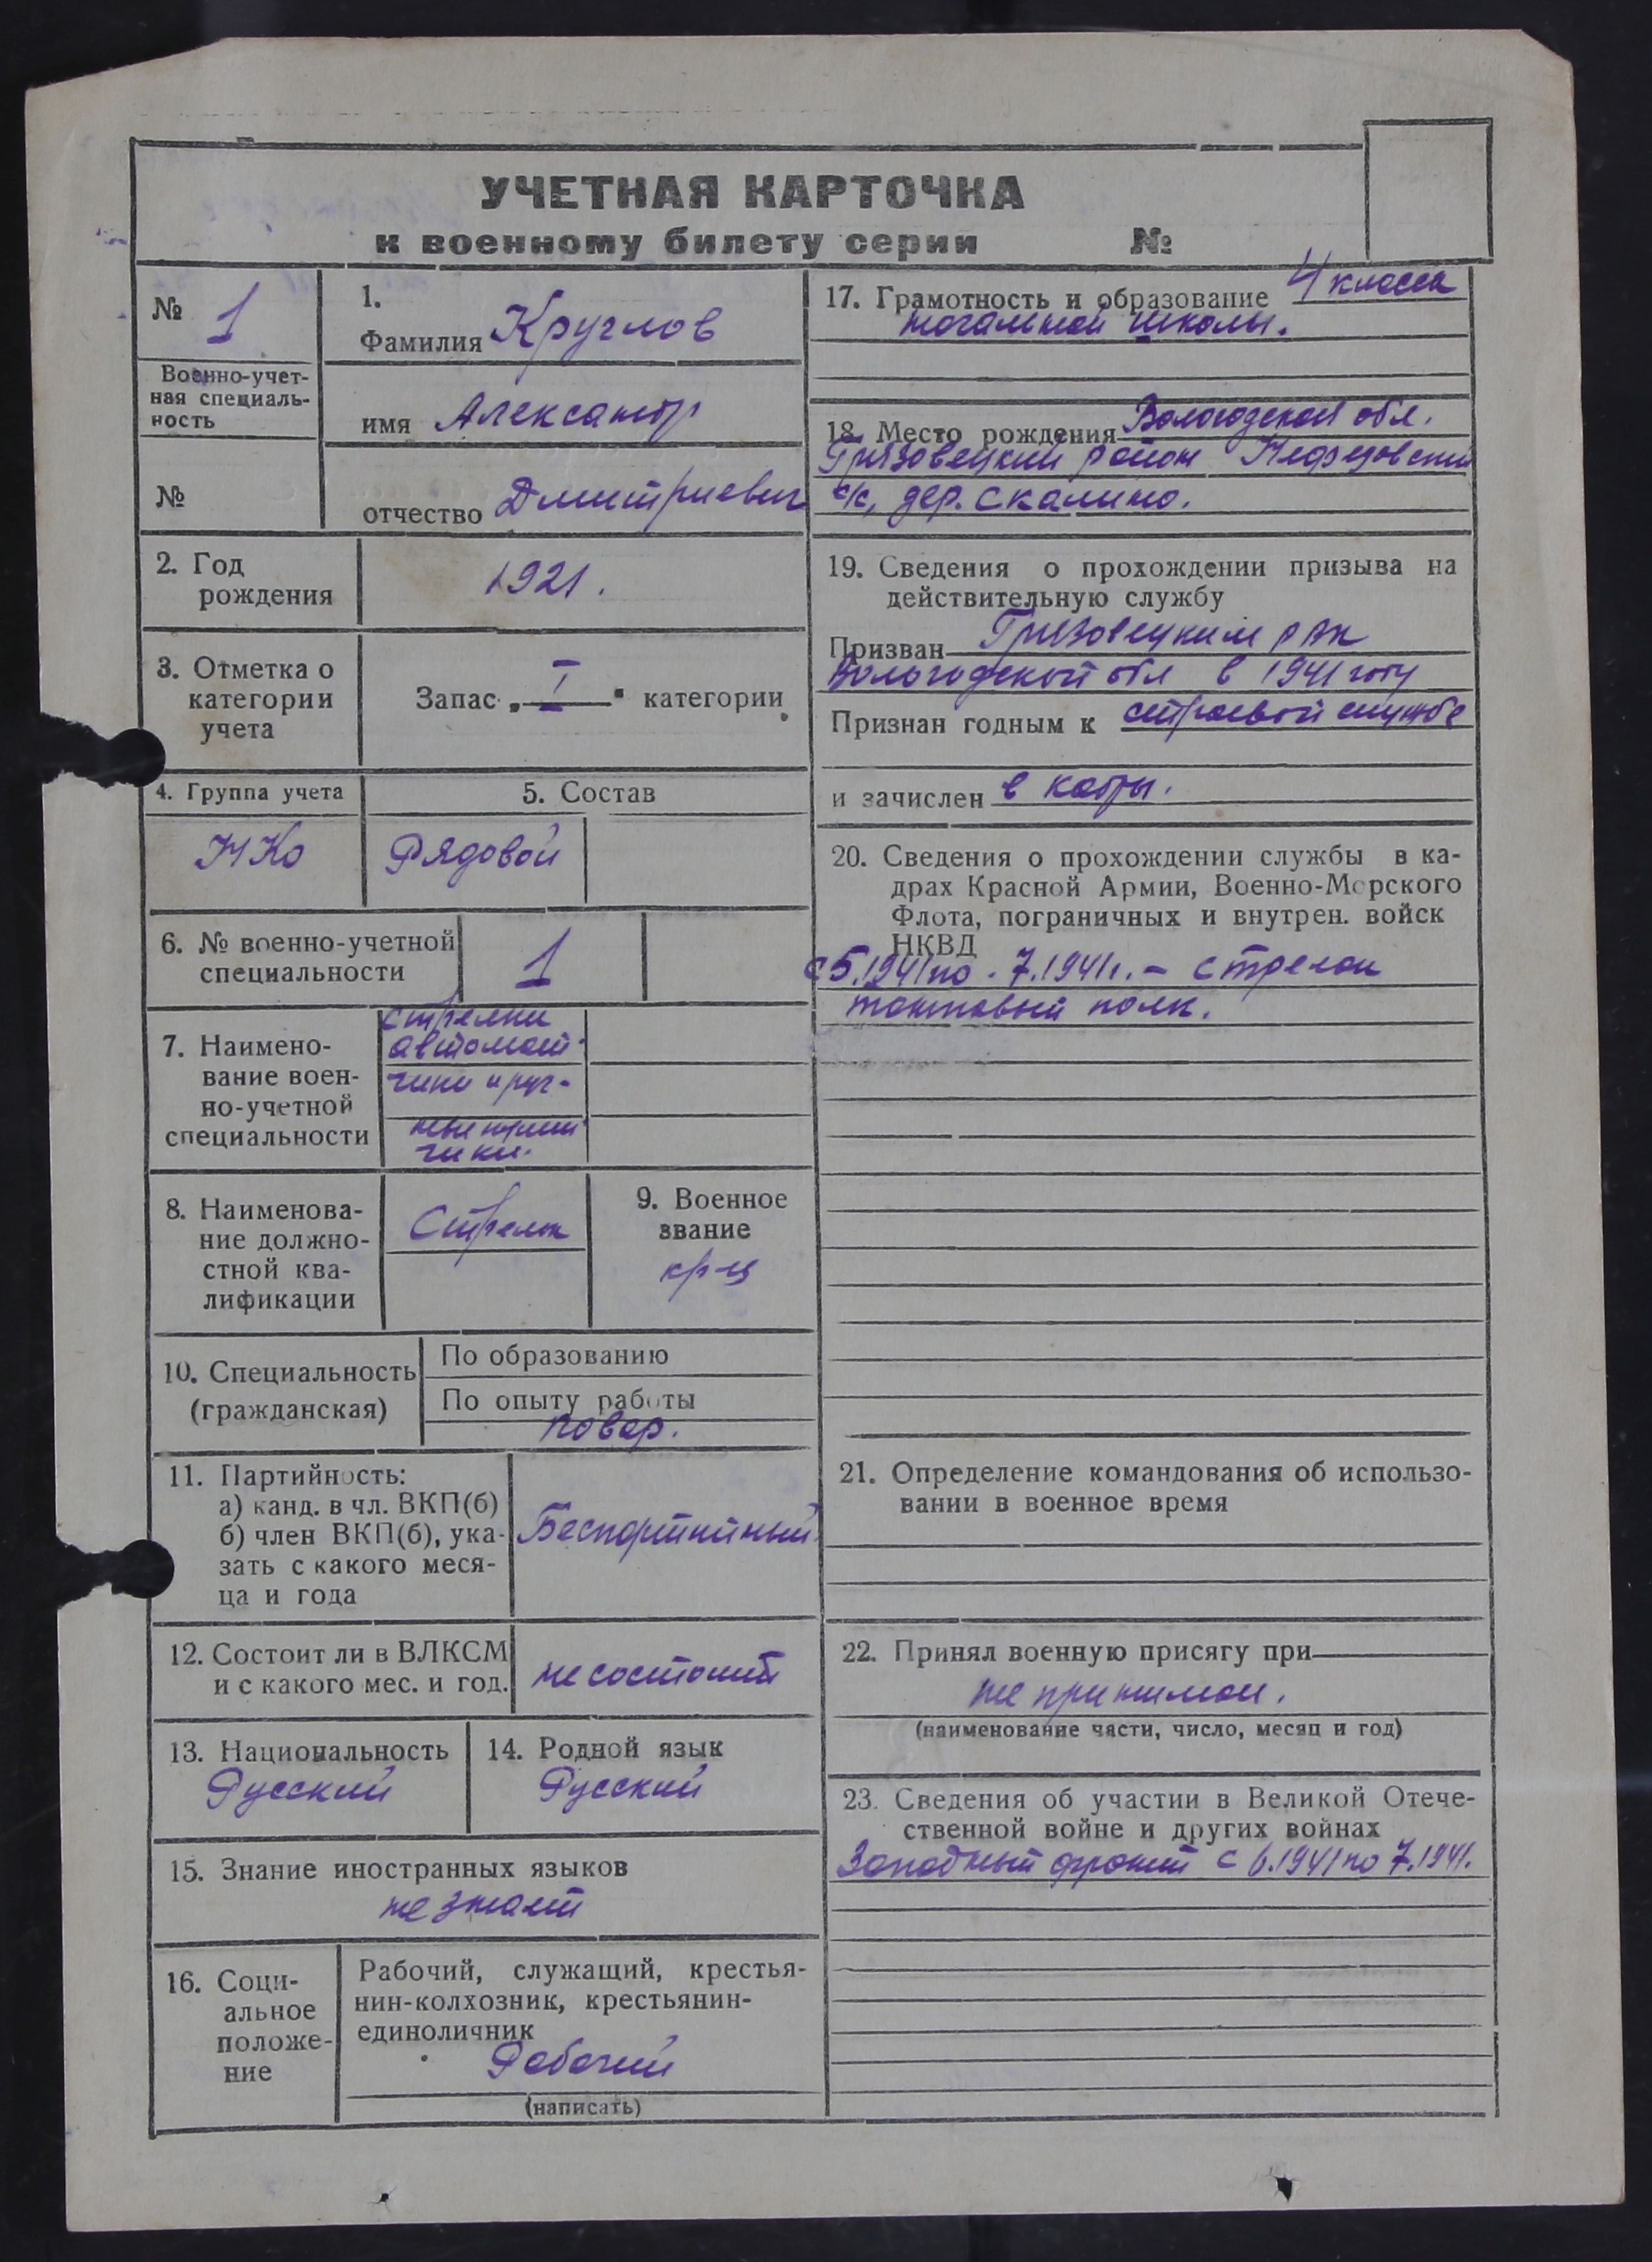 УЧЕТНАЯ КАРТОЧКА
к военному билету серии №
№ 1
Военно-учет-
ная специаль-
ность
№
1.
Фамилия Круглов
имя Александр
отчество Дмитриевич
2. Год
рождения
1921.
3. Отметка о
категории
учета
Запас „ I " категории
4. Группа учета
НКО
5. Состав
Рядовой
6. № военно-учетной
специальности
1
7. Наимено-
вание воен-
но-учетной
специальности
стрелки
автомат-
чики и руч-
ные
чики.
8. Наименова-
ние должно-
стной ква-
лификации
Стрелок
9. Военное
звание
кр-ц
10. Специальность
(гражданская)
По образованию
По опыту работы
повар.
11. Партийность:
а) канд. в чл. ВКП(б)
б) член ВКП(б), ука-
зать с какого меся-
ца и года
Беспартийный
12. Состоит ли в ВЛКСМ
и с какого мес. и год.
не состоит
13. Национальность
Русский
14. Родной язык
Русский
15. Знание иностранных языков
не знает
16. Соци-
альное
положе-
ние
Рабочий, служащий, крестья-
нин-колхозник, крестьянин-
единоличник
Рабочий
(написать)
17. Грамотность и образование 4 класса
начальной школы.
18. Место рождения Вологодской обл.
Грязовецкий район Нефедовский
с/с, дер. Скалино.
19. Сведения о прохождении призыва на
действительную службу
Призван Грязовецким РВК
Вологодской обл в 1941 году
Признан годным к строевой службе
и зачислен в кадры.
20. Сведения о прохождении службы в ка-
драх Красной Армии, Военно-Морского
Флота, пограничных и внутрен. войск
НКВД
с 5.1941 по 7.1941г. - стрелок
танковый полк.
21. Определение командования об использо-
вании в военное время
22. Принял военную присягу при
не принимал.
(наименование части, число, месяц и год)
23. Сведения об участии в Великой Отече-
ственной войне и других войнах
Западный фронт с 6.1941 по 7.1941.